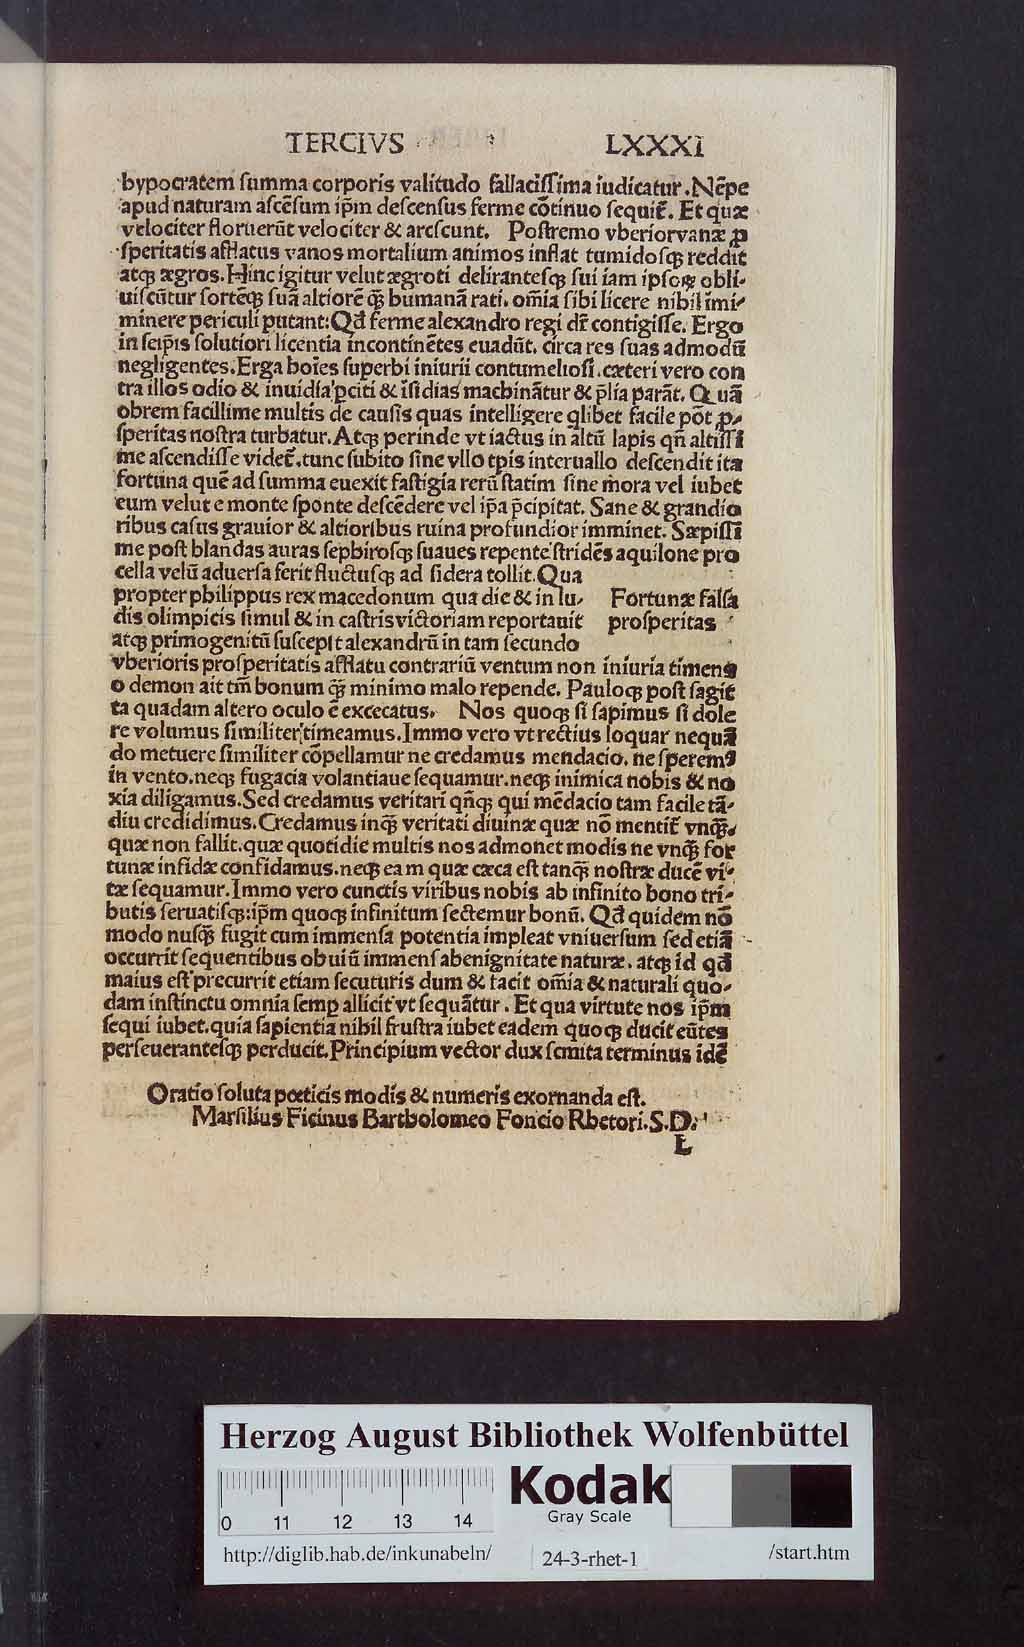 TERCIVS LXXXI
hypocratem ſumma corporis valitudo fallaciſſima iudicatur. Nēpe
apud naturam aſcēſum ip̄m deſcenſus ferme cōtinuo ſequit̄. Et quæ
velociter floruerūt velociter & areſcunt. Poſtremo vberior vanæ ꝓ
ſperitatis afflatus vanos mortalium animos inflat tumidoſqꝫ reddit
atqꝫ ægros. Hinc igitur velut ægroti deliranteſqꝫ ſui iam ipſoꝝ obli-
uiſcūtur ſortēqꝫ ſuā altiorē qꝫ̄ humanā rati. om̄ia ſibi licere nihil īmi-
minere periculi putant: Qd̄ ferme alexandro regi dr̄ contigiſſe. Ergo
in ſeip̄is ſolutiori licentia incontinētes euadūt. circa res ſuas admodū
negligentes. Erga hoīes ſuperbi iniurii contumelioſi. cæteri vero con
tra illos odio & inuidia ꝑciti & īſidias machinātur & p̄lia parāt. Quā
obrem facillime multis de cauſis quas intelligere qlibet facile pōt ꝓ-
ſperitas noſtra turbatur. Atqꝫ perinde vt iactus in altū lapis qn̄ altiſſi
me aſcendiſſe videt̄. tunc ſubito ſine vllo tp̄is interuallo deſcendit ita
fortuna quē ad ſumma euexit faſtigia rerū ſtatim ſine mora vel iubet
eum velut e monte ſponte deſcēdere vel ip̄a p̄cipitat. Sane & grandio
ribus caſus grauior & altioribus ruina profundior imminet. Sæpiſſi
me poſt blandas auras ſephiroſqꝫ ſuaues repente ſtridēs aquilone pro
cella velū aduerſa ferit fluctuſqꝫ ad ſidera tollit. Qua
propter philippus rex macedonum qua die & in lu- Fortunæ falſa
dis olimpicis ſimul & in caſtris victoriam reportauit proſperitas
atqꝫ primogenitū ſuſcepit alexandrū in tam ſecundo
vberioris proſperitatis afflatu contrariū ventum non iniuria timens
o demon ait tm̄ bonum qꝫ̄ minimo malo repende. Pauloqꝫ poſt ſagit
ta quadam altero oculo ē excecatus. Nos quoqꝫ ſi ſapimus ſi dole
re volumus ſimiliter timeamus. Immo vero vt rectius loquar nequā
do metuere ſimiliter cōpellamur ne credamus mendacio. ne ſperemꝰ
in vento. neqꝫ fugacia volantiaue ſequamur. neqꝫ inimica nobis & no
xia diligamus. Sed credamus veritati qn̄qꝫ qui mēdacio tam facile tā-
diu credidimus. Credamus inqꝫ̄ veritati diuinæ quæ nō mentit̄ vnqꝫ̄.
quæ non fallit. quæ quotidie multis nos admonet modis ne vnqꝫ̄ for
tunæ infidæ confidamus. neqꝫ eam quæ cæca eſt tanqꝫ̄ noſtræ ducē vi-
tæ ſequamur. Immo vero cunctis viribus nobis ab infinito bono tri-
butis ſeruatiſqꝫ: ip̄m quoqꝫ infinitum ſectemur bonū. Qd̄ quidem nō
modo nuſqꝫ̄ fugit cum immenſa potentia impleat vniuerſum ſed etiā
occurrit ſequentibus obuiū immenſa benignitate naturæ. atqꝫ id qd̄
maius eſt precurrit etiam ſecuturis dum & facit om̄ia & naturali quo-
dam inſtinctu omnia ſemp̱ allicit vt ſequātur. Et qua virtute nos ip̄m
ſequi iubet. quia ſapientia nihil fruſtra iubet eadem quoqꝫ ducit eūtes
perſeueranteſqꝫ perducit. Principium vector dux ſemita terminus idē
Oratio ſoluta pœticis modis & numeris exornanda eſt.
Marſilius Ficinus Bartholomeo Foncio Rhetori. S. D.
L
Herzog August Bibliothek Wolfenbüttel
Kodak
Gray Scale
0 11 12 13 14
http://diglib.hab.de/inkunabeln/ 24-3-rhet-1 /start.htm